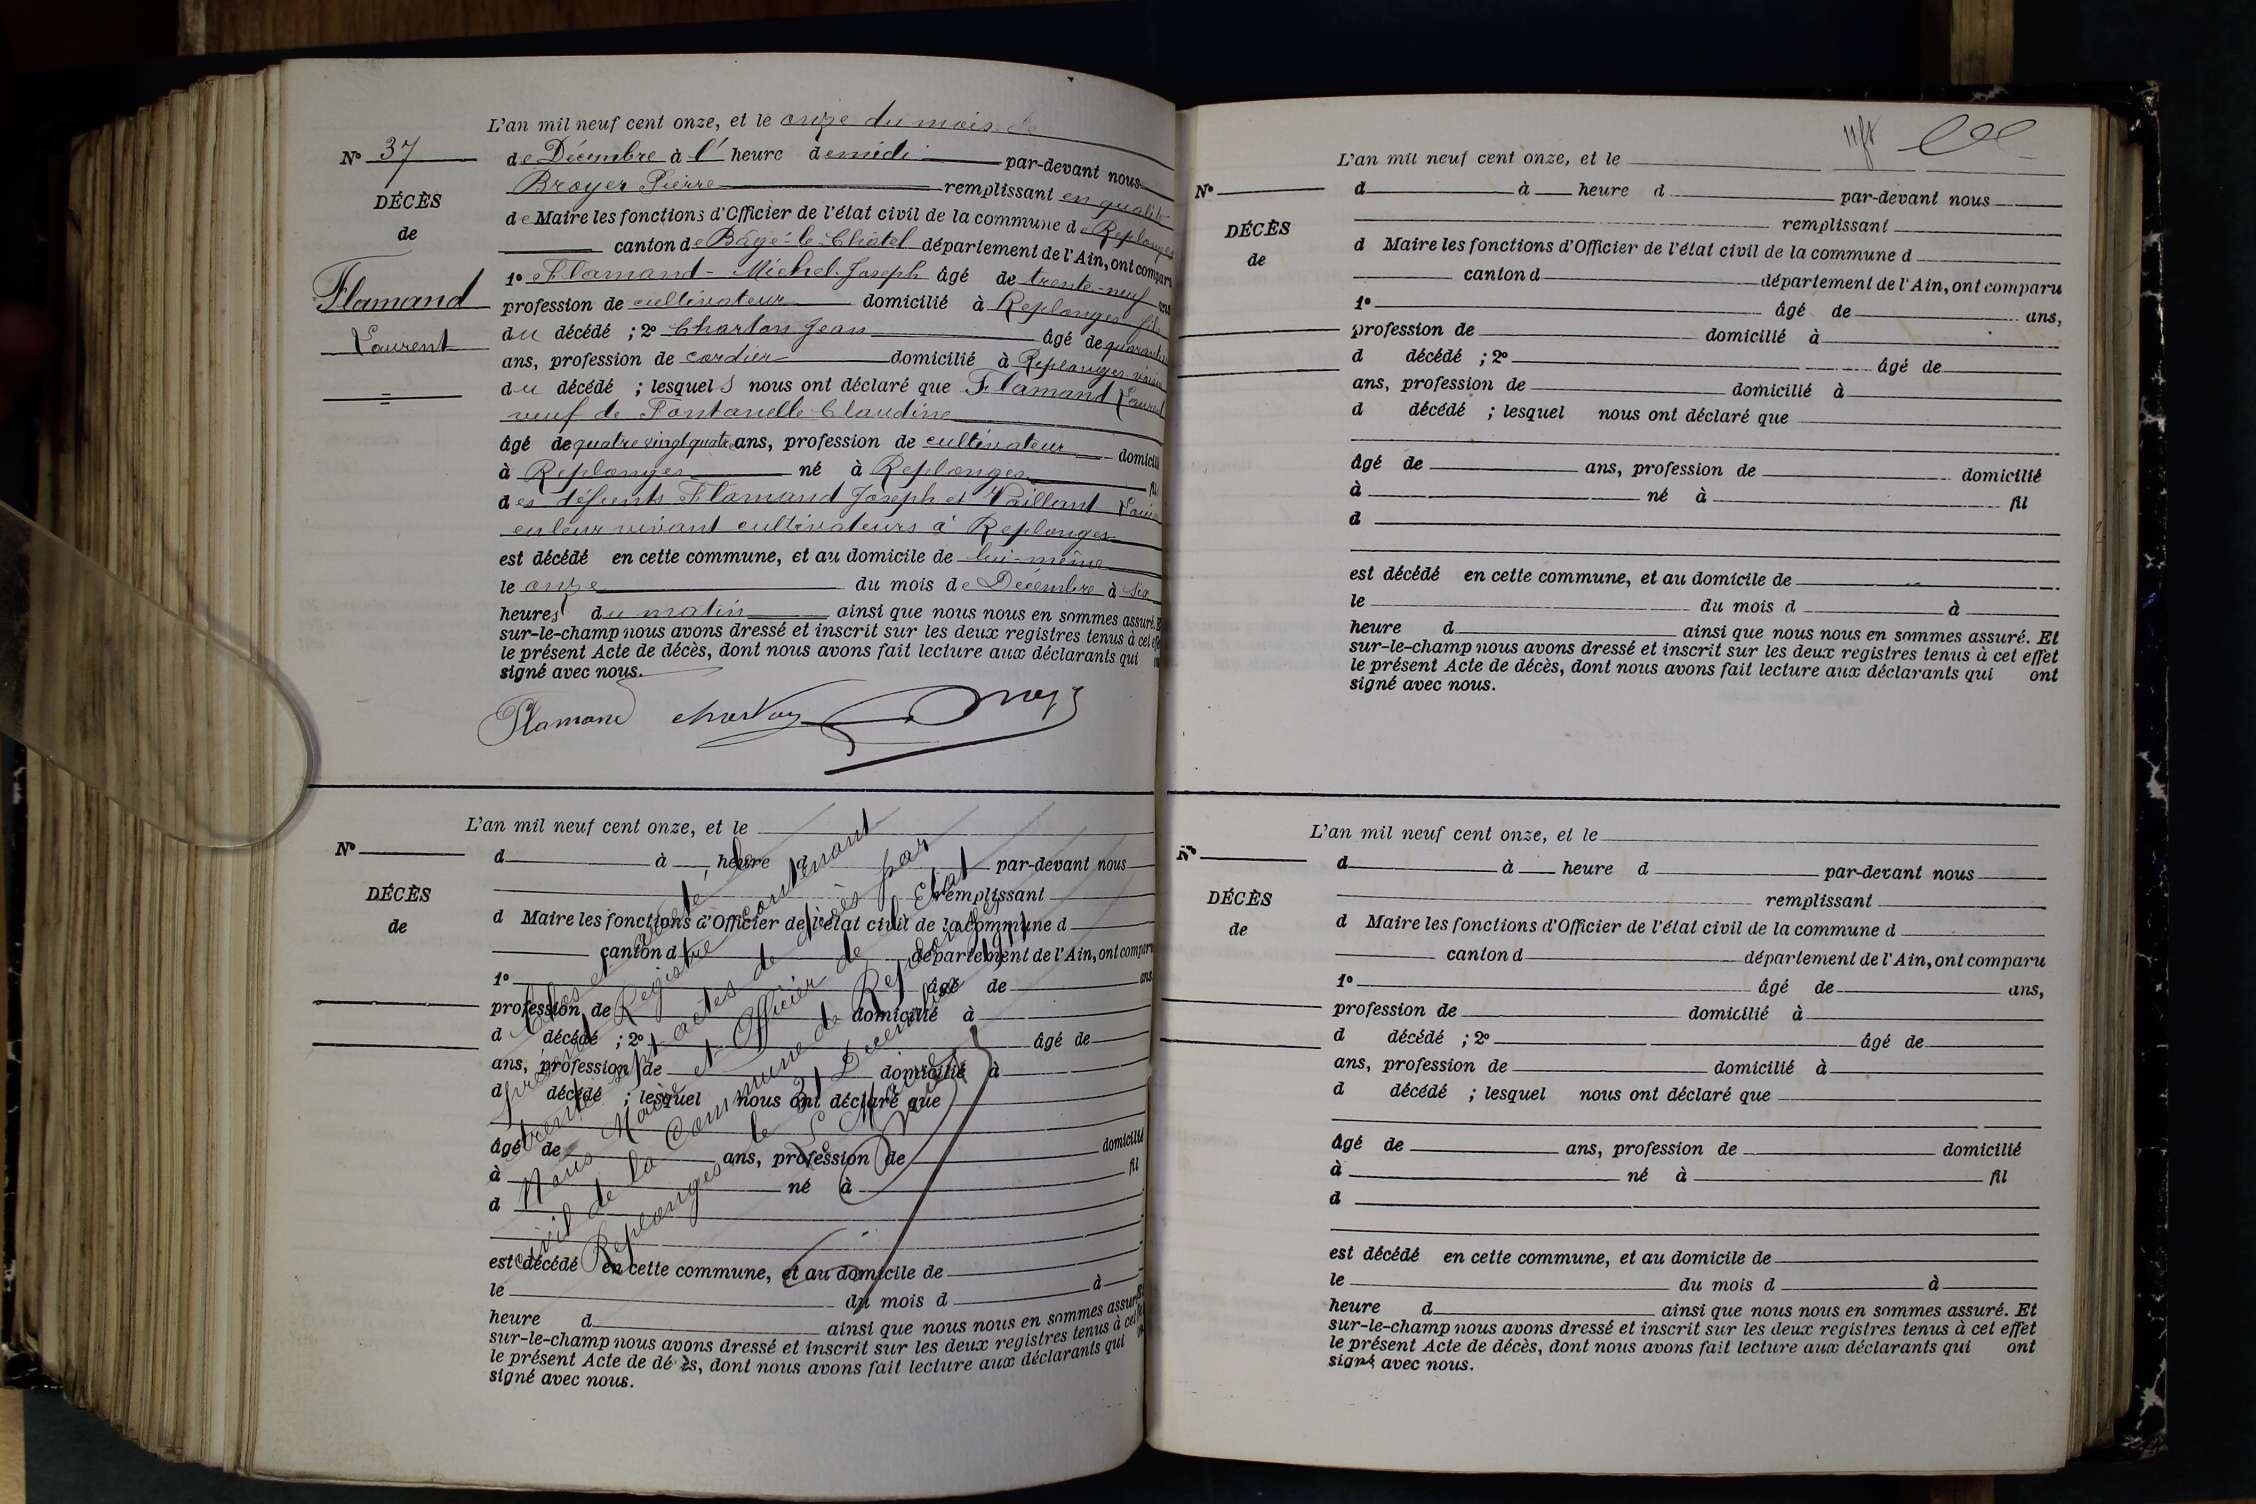 L'an mil neuf cent onze, et le onze du mois de
N° 37
de Décembre à l' heure de midi par-devant nous
Broyer Pierre remplissant en qualité
DÉCÈS
de Maire les fonctions d'Officier de l'état civil de la commune de Replonges
de
canton de Bâgé-le-Châtel département de l'Ain, ont comparu
Flamand
1° Flamand Michel Joseph âgé de trente-neuf ans
profession de cultivateur domicilié à Replonges fils
Laurent
du décédé ; 2° Charton Jean âgé de quarante
ans, profession de cordier domicilié à Replonges voisin
du décédé ; lesquels nous ont déclaré que Flamand Laurent
veuf de Fontanelle Claudine
âgé de quatre vingt quatre ans, profession de cultivateur domicilié
à Replonges né à Replonges fil
des défunts Flamand Joseph et Vaillant Louise
en leur vivant cultivateurs à Replonges
est décédé en cette commune, et au domicile de lui-même
le onze du mois de Décembre à six
heures du matin ainsi que nous nous en sommes assuré. Et
sur-le-champ nous avons dressé et inscrit sur les deux registres tenus à cet effet
le présent Acte de décès, dont nous avons fait lecture aux déclarants qui
signé avec nous.
Flamand Charton Broyer
L'an mil neuf cent onze, et le
N°
d à heure d par-devant nous
remplissant
DÉCÈS
d Maire les fonctions d'Officier de l'état civil de la commune d
de
canton d département de l'Ain, ont comparu
1° âgé de ans
profession de domicilié à
d décédé ; 2° âgé de
ans, profession de domicilié à
d décédé ; lesquel nous ont déclaré que
âgé de ans, profession de domicilié
à né à fil
d
est décédé en cette commune, et au domicile de
le du mois d à
heure d ainsi que nous nous en sommes assuré. Et
sur-le-champ nous avons dressé et inscrit sur les deux registres tenus à cet
le présent Acte de décès, dont nous avons fait lecture aux déclarants qui
signé avec nous.
Clos et arrêté le
présent Registre contenant
trente sept actes de décès par
Nous Maire et Officier de l'Etat
civil de la Commune de Replonges
Replonges le 31 Décembre 1911
Le Maire
L'an mil neuf cent onze, et le
N°
d à heure d par-devant nous
remplissant
DÉCÈS
d Maire les fonctions d'Officier de l'état civil de la commune d
de
canton d département de l'Ain, ont comparu
1° âgé de ans,
profession de domicilié à
d décédé ; 2° âgé de
ans, profession de domicilié à
d décédé ; lesquel nous ont déclaré que
âgé de ans, profession de domicilié
à né à fil
d
est décédé en cette commune, et au domicile de
le du mois d à
heure d ainsi que nous nous en sommes assuré. Et
sur-le-champ nous avons dressé et inscrit sur les deux registres tenus à cet effet
le présent Acte de décès, dont nous avons fait lecture aux déclarants qui ont
signé avec nous.
L'an mil neuf cent onze, et le
N°
d à heure d par-devant nous
remplissant
DÉCÈS
d Maire les fonctions d'Officier de l'état civil de la commune d
de
canton d département de l'Ain, ont comparu
1° âgé de ans,
profession de domicilié à
d décédé ; 2° âgé de
ans, profession de domicilié à
d décédé ; lesquel nous ont déclaré que
âgé de ans, profession de domicilié
à né à fil
d
est décédé en cette commune, et au domicile de
le du mois d à
heure d ainsi que nous nous en sommes assuré. Et
sur-le-champ nous avons dressé et inscrit sur les deux registres tenus à cet effet
le présent Acte de décès, dont nous avons fait lecture aux déclarants qui ont
signé avec nous.